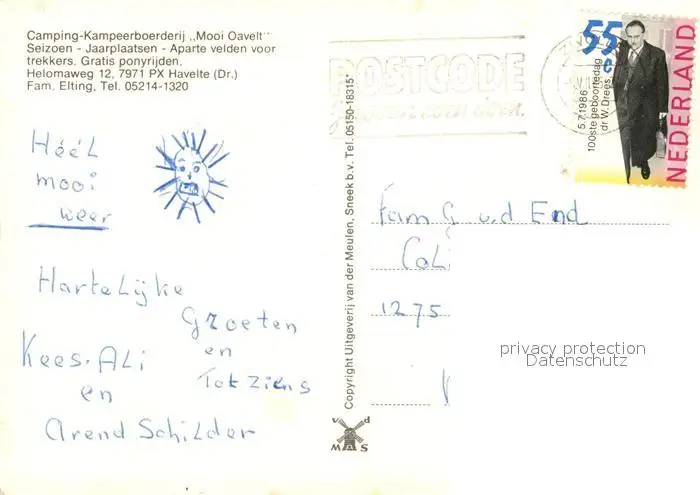 Camping-Kampeerboerderij ,,Mooi Oavelt"
Seizoen - Jaarplaatsen - Aparte velden voor
trekkers. Gratis ponyrijden.
Helomaweg 12, 7971 PX Havelte (Dr.)
Fam. Elting, Tel. 05214-1320
Héél
mooi
weer
Hartelijke
Groeten
en
Tot Ziens
Kees. Ali
en
Arend Schilder
Copyright Uitgeverij van der Meulen, Sneek b.v. Tel. 05150-18315
v d
MAS
POSTCODE
55
c
5.7.1986
100ste geboortedag
dr W. Drees
NEDERLAND
Fam G v.d End
Coli
1275
privacy protection
Datenschutz